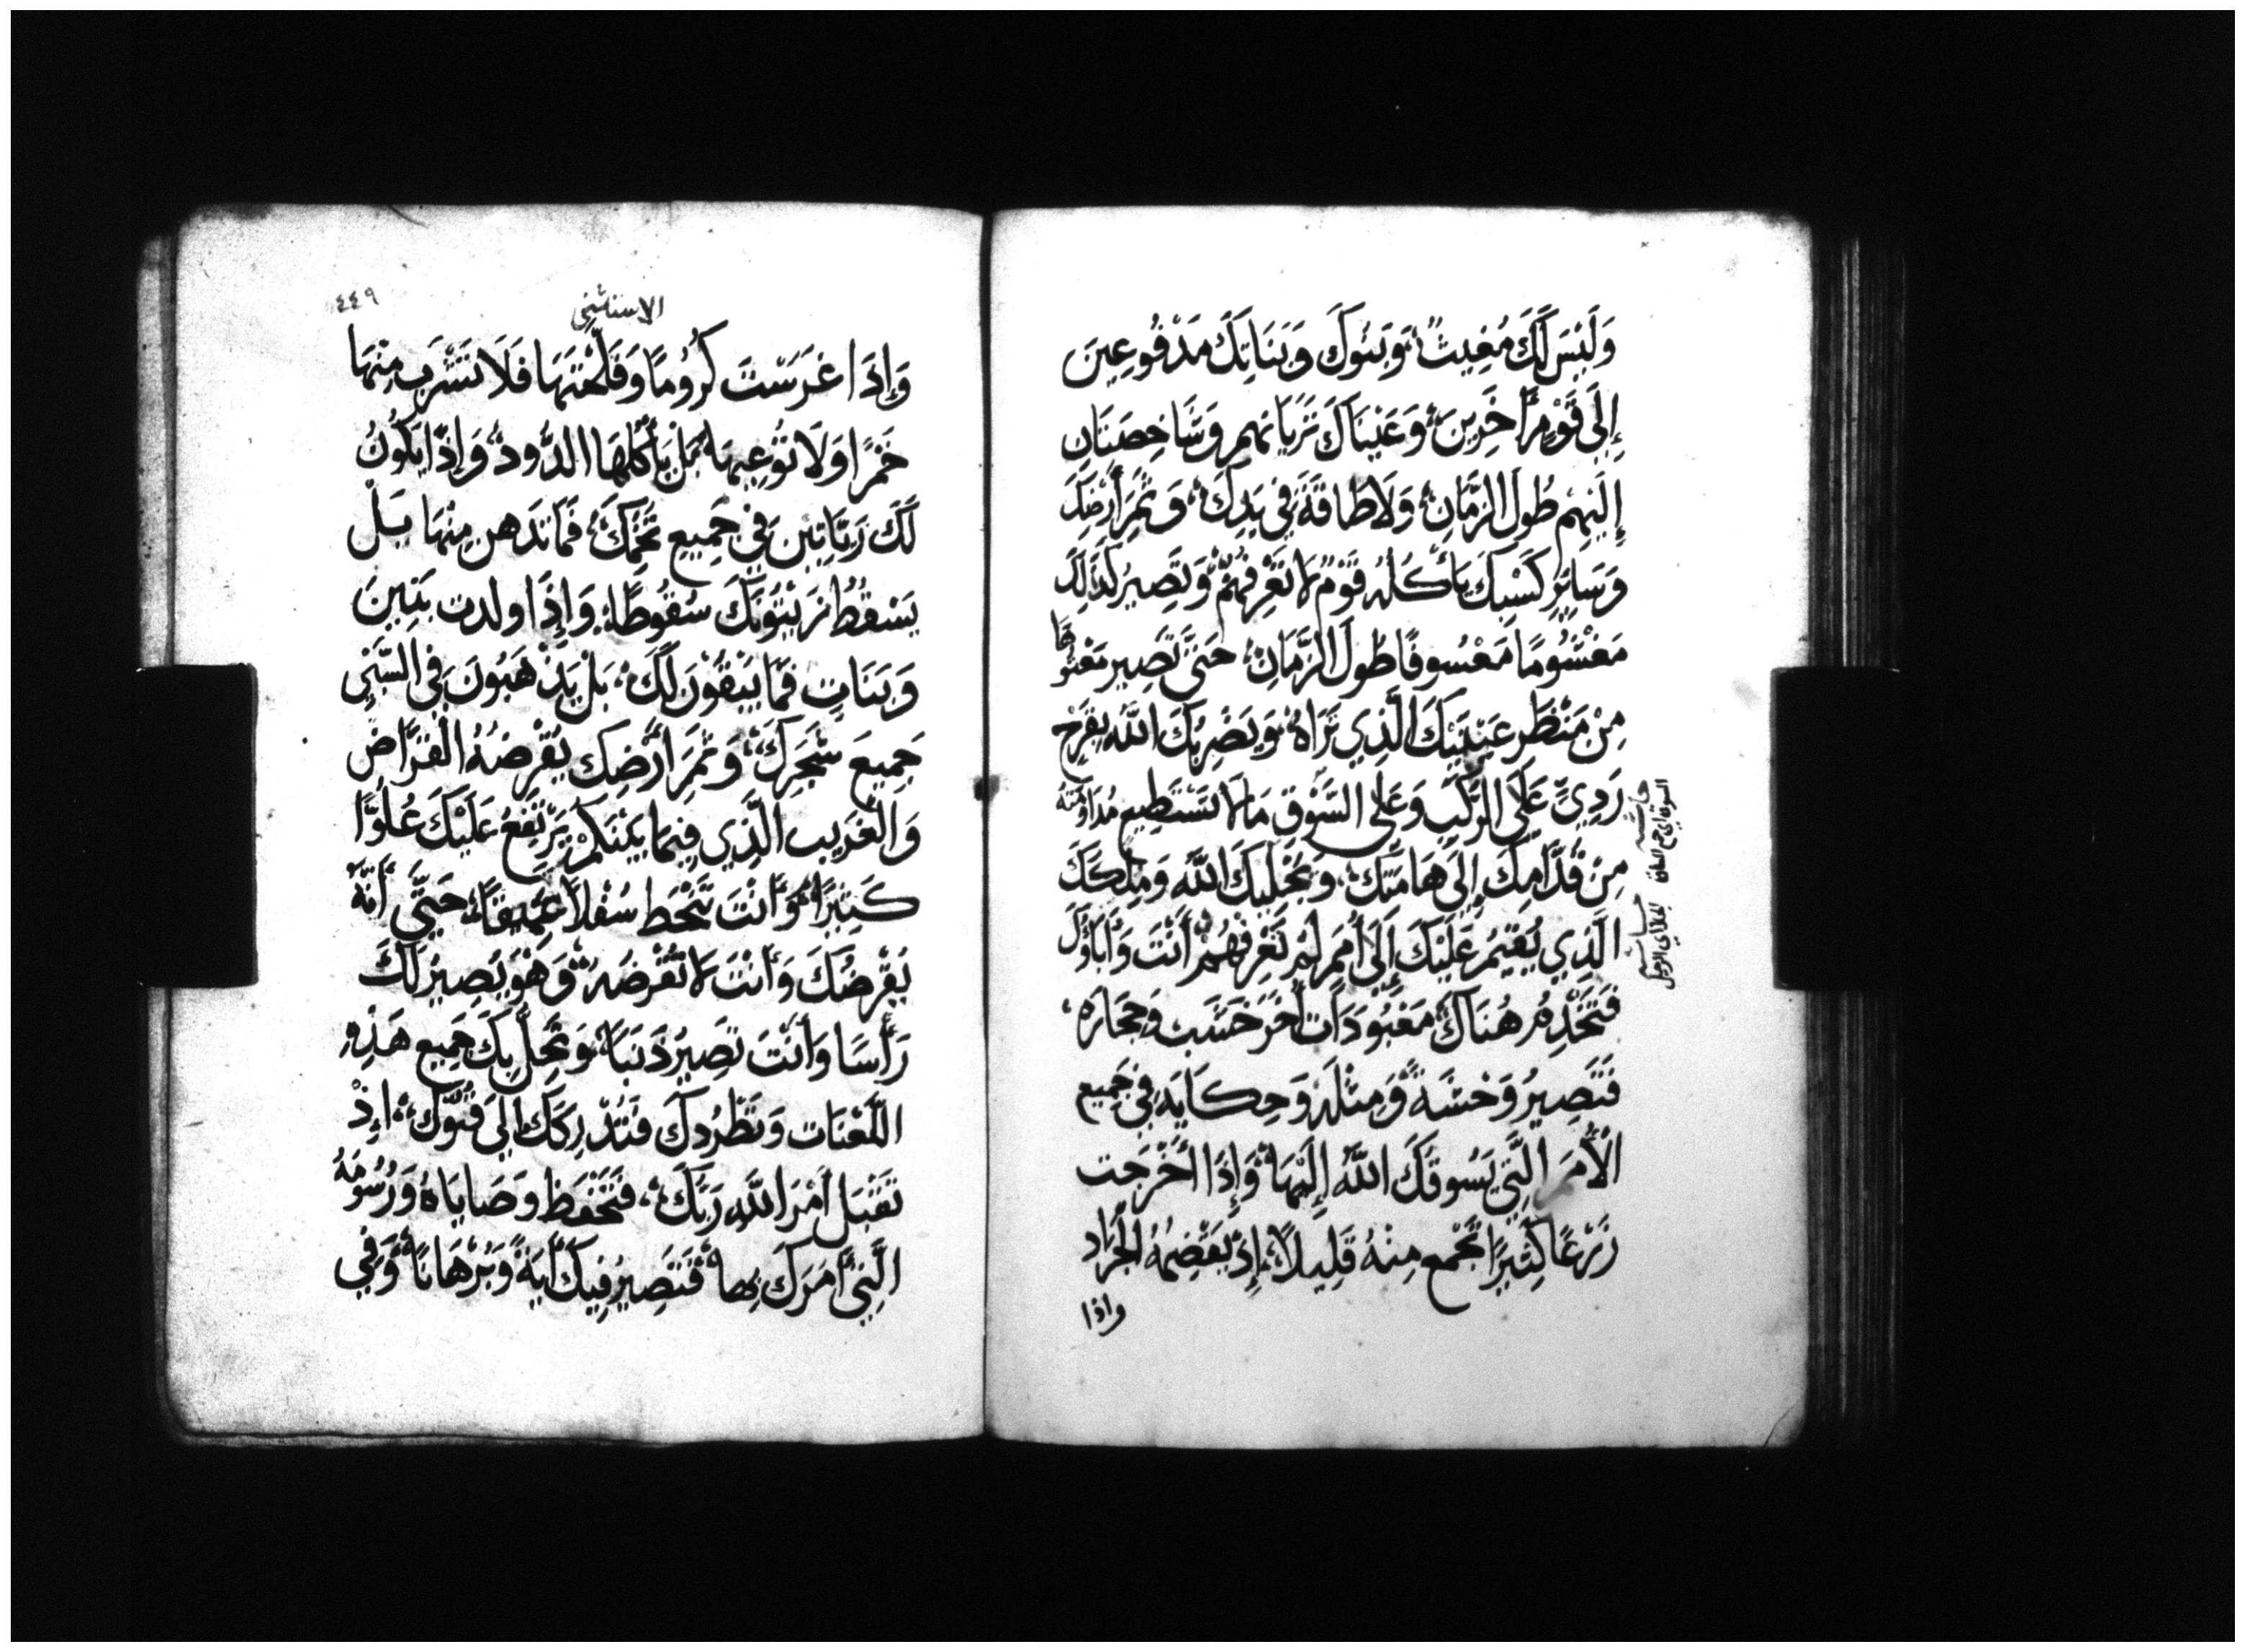 وَلَيْسَ لَكَ مُغِيثٌ، وَبَنُوكَ وَبَنَاتِكَ مَدْفُوعِينَ
إِلَى قَوْمٍ أَخَرِينَ، وَعَيْنَاكَ تَرَيَانِهِم وَشَاخِصَتَانِ
إِلَيْهِمْ طُولَ الزَّمَانِ، وَلَا طَاقَةَ فِي يَدِكَ، وَثَمَرَ أَرْضِكَ
وَسَائِرِ كَسْبِكَ يَأْكُلُهُ قَوْمٌ لَا تَعْرِفُهُمْ، وَتَصِيرُ كَذَلِكَ
مَغْشُومًا مَعْسُوفًا طُولَ الزَّمَانِ، حَتَّى تَصِيرَ مَعْتُوهًا
مِنْ مَنْظَرِ عَيْنَيْكَ الَّذِي تَرَاهُ، وَيَضْرِبُكَ اللَّهُ بِقَرْحٍ
رَدِيٍّ عَلَى الرُّكَبِ وَعَلَى السُّوقِ مَا لَا تَسْتَطِيعُ مُدَاوَمَتَهُ
مِنْ قُدَّامِكَ إِلَى هَامَتِكَ، وَيُجْلِيكَ اللَّهُ وَمَلِكَكَ
الَّذِي يُقِيمُ عَلَيْكَ إِلَى أُمَمٍ لَمْ تَعْرِفْهُمْ أَنْتَ وَأَبَاؤُكَ
فَتَخْدِمُ هُنَاكَ، مَعْبُودَاتٍ أُخَرَ خَشَبٍ وَحِجَارَةٍ،
فَتَصِيرُ وَحْشَةً وَمِثْلَةً وَحِكَايَةً فِي جَمِيعِ
الْأُمَمِ الَّتِي يَسُوقُكَ اللَّهُ إِلَيْهَا، وَإِذَا أَخْرَجْتَ
زَرْعًا كَثِيرًا تَجْمَعُ مِنْهُ قَلِيلًا، إِذْ يَقْضِمُهُ الْجَرَادُ
واذا
الاستثني
٤٤٩
وَإِذَا غَرَسْتَ كُرُومًا وَفَلَحْتَهَا فَلَا تَشْرَبُ مِنْهَا
خَمْرًا وَلَا تُوعِيهَا، بَلْ يَأْكُلُهَا الدُّودُ، وَإِذَا يَكُونُ
لَكَ زَيَّاتِينَ فِي جَمِيعِ تُخْمِكَ، فَمَا تَدَهن مِنْهَا بَلْ
يَسْقُطُ زَيْتُونَكَ سُقُوطًا، وَإِذَا ولدت بَنِينَ
وَبَنَاتٍ فَمَا يَبْقُونَ لَكَ، بَلْ يَذْهَبُونَ فِي السَّبْيِ
جَمِيعَ شَجَرِكَ، وَثَمَرَ أَرْضِكَ يُقْرِضُهُ الْقَرَّاضُ
وَالْغَرِيبِ الَّذِي فِيمَا بَيْنَكُمْ يَرْتَفِعُ عَلَيْكَ عُلُوًّا
كَثِيرًا، وَأَنْتَ تَنْحَطُّ سُفْلًا عَمِيقًا، حَتَّى أَنَّهُ
يُقْرِضُكَ وَأَنْتَ لَا تُقْرِضُهُ، وَهُوَ يَصِيرُ لَكَ
رَأْسًا وَأَنْتَ تَصِيرُ ذَنَبًا، وَتَحِلُّ بِكَ جَمِيعُ هَذِهِ
اللَّعْنَاتِ وَتَطْرُدكَ فَتُدْرِكَكَ إِلَى فَنَوْكَ، إِذْ
تَقْبَل أَمْرَ اللَّهِ رَبِّكَ، فَتَحْفَظ وَصَايَاهُ وَرُسُومَهُ
الَّتِي أَمَرَكَ بِهَا، فَتَصِيرُ فِيكَ أَيَةً وَبُرْهَانًا، وَفِي